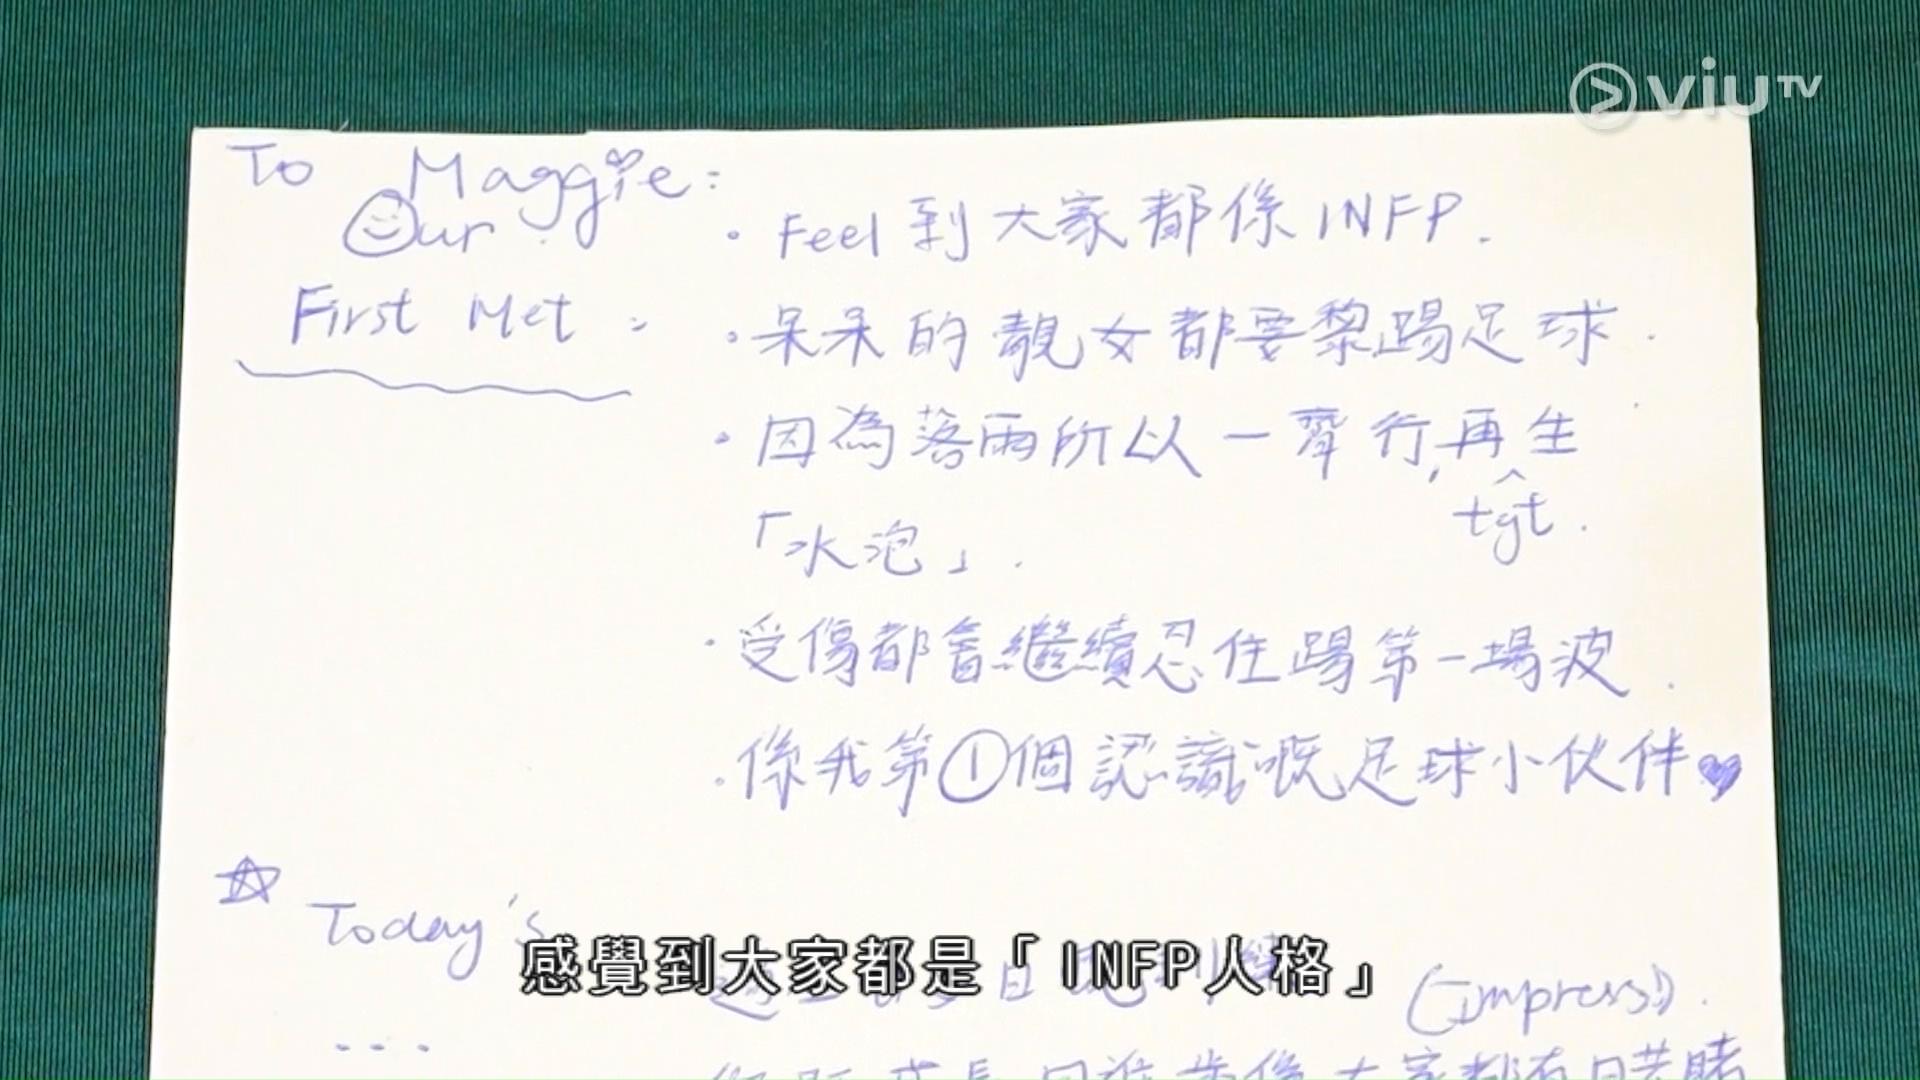 viuTV
To Maggie:
Our
First Met:
• Feel到大家都係INFP.
• 呆呆的靚女都要黎踢足球.
• 因為落雨所以一齊行,再生
tgt.
「水泡」.
• 受傷都會繼續忍住踢第一場波.
• 係我第①個認識嘅足球小伙伴
Today's
感覺到大家都是「INFP人格」
(Impress).
...
大家都有目共睹